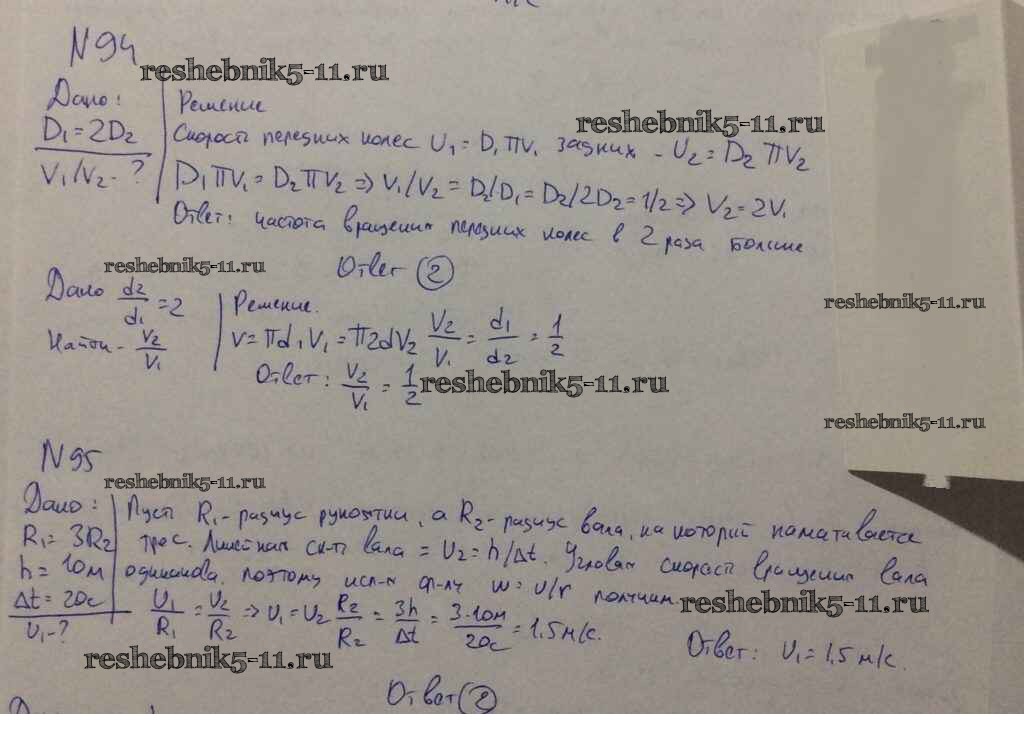 N94
reshebnik5-11.ru
Дано:
D₁=2D₂
V₁/V₂-?
Решение
reshebnik5-11.ru
Скорость передних колес U₁=D₁πν₁ задних - U₂=D₂πV₂
D₁πV₁=D₂πV₂⇒V₁/V₂=D₂/D₁=D₂/2D₂=1/2⇒V₂=2V₁
Ответ: частота вращения передних колес в 2 раза больше
reshebnik5-11.ru
Ответ (2)
Дано d₂/d₁=2
Найти - V₂/V₁
Решение.
v=πd₁V₁=π2dV₂ V₂/V₁=d₁/d₂=1/2
reshebnik5-11.ru
Ответ: V₂/V₁=1/2
reshebnik5-11.ru
reshebnik5-11.ru
N95
reshebnik5-11.ru
Дано:
R₁=3R₂
h=10м
Δt=20с
U₁-?
Пусть R₁-радиус рукоятки, а R₂-радиус вала, на который наматывается
трос. Линейная ск-ть вала = U₂=h/Δt. Угловая скорость вращения вала
одинакова, поэтому исп-я ф-лу w=υ/r получим
reshebnik5-11.ru
U₁/R₁=U₂/R₂⇒U₁=U₂ R₂/R₂=3h/Δt=3·10м/20с=1.5м/с.
Ответ: U₁=1,5м/с.
reshebnik5-11.ru
Ответ (2)